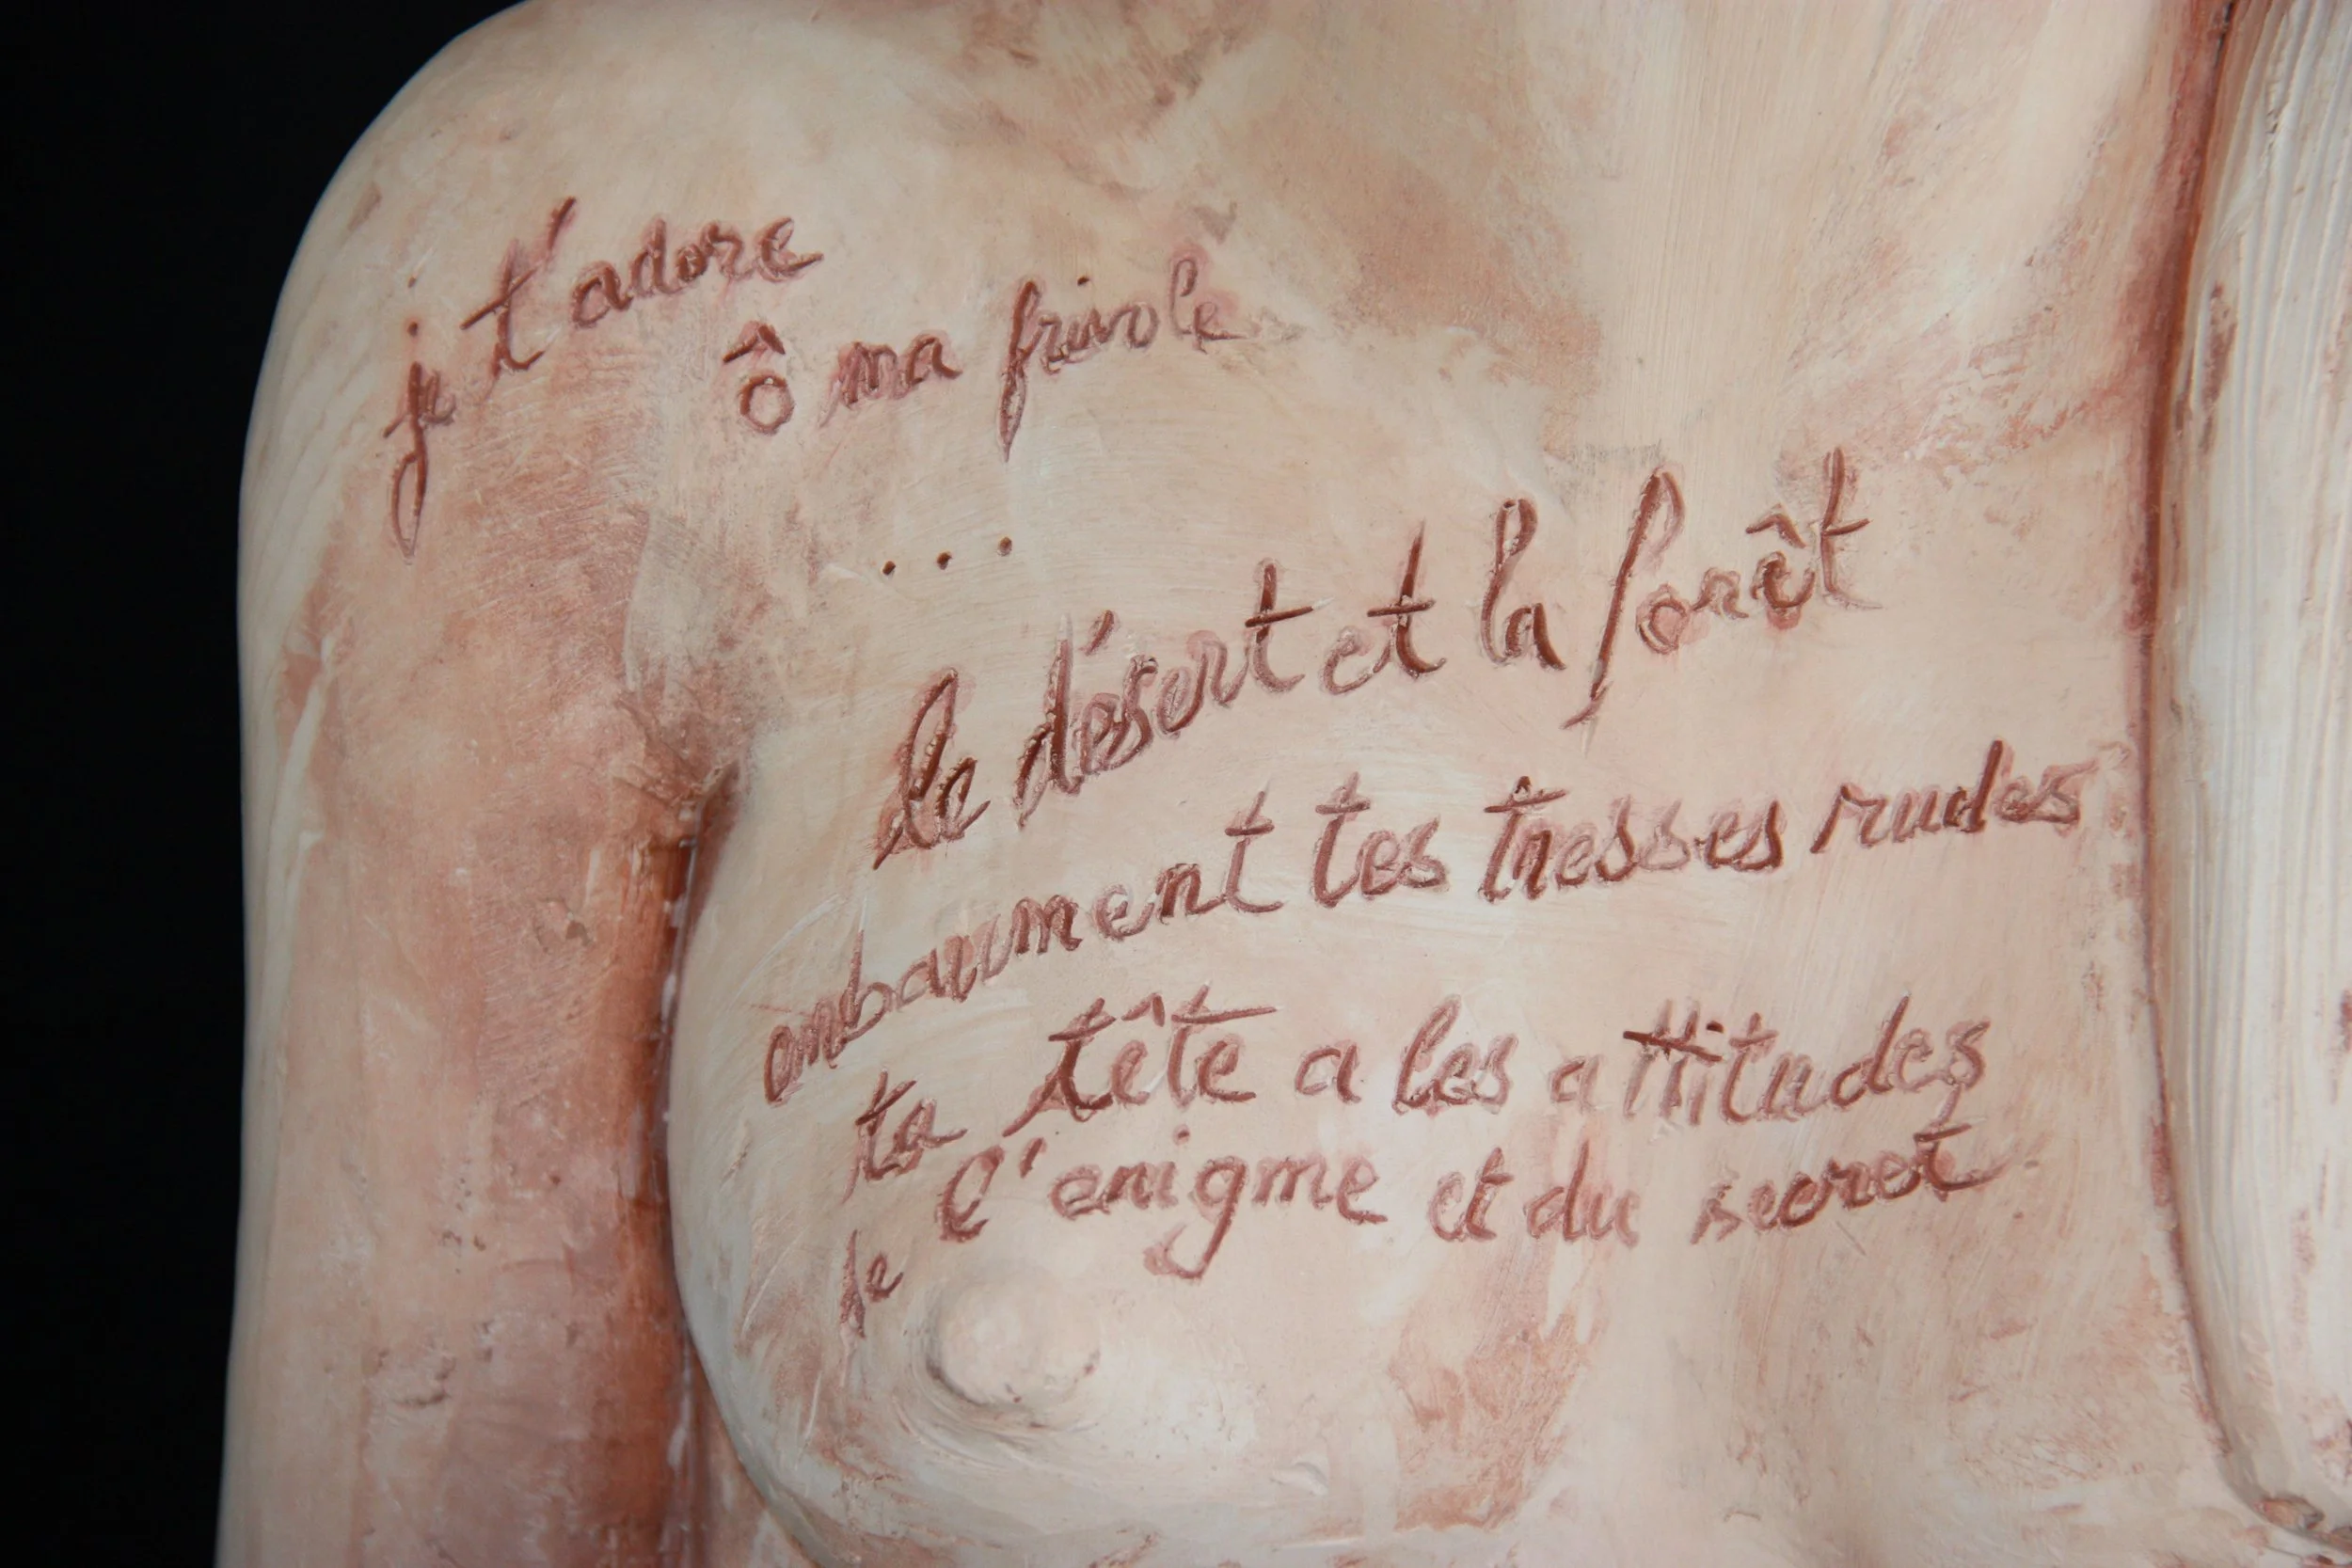 je t'adore
ô ma frivole
...
le désert et la forêt
embaument tes tresses rudes
ta tête a les attitudes
de l'enigme et du secret